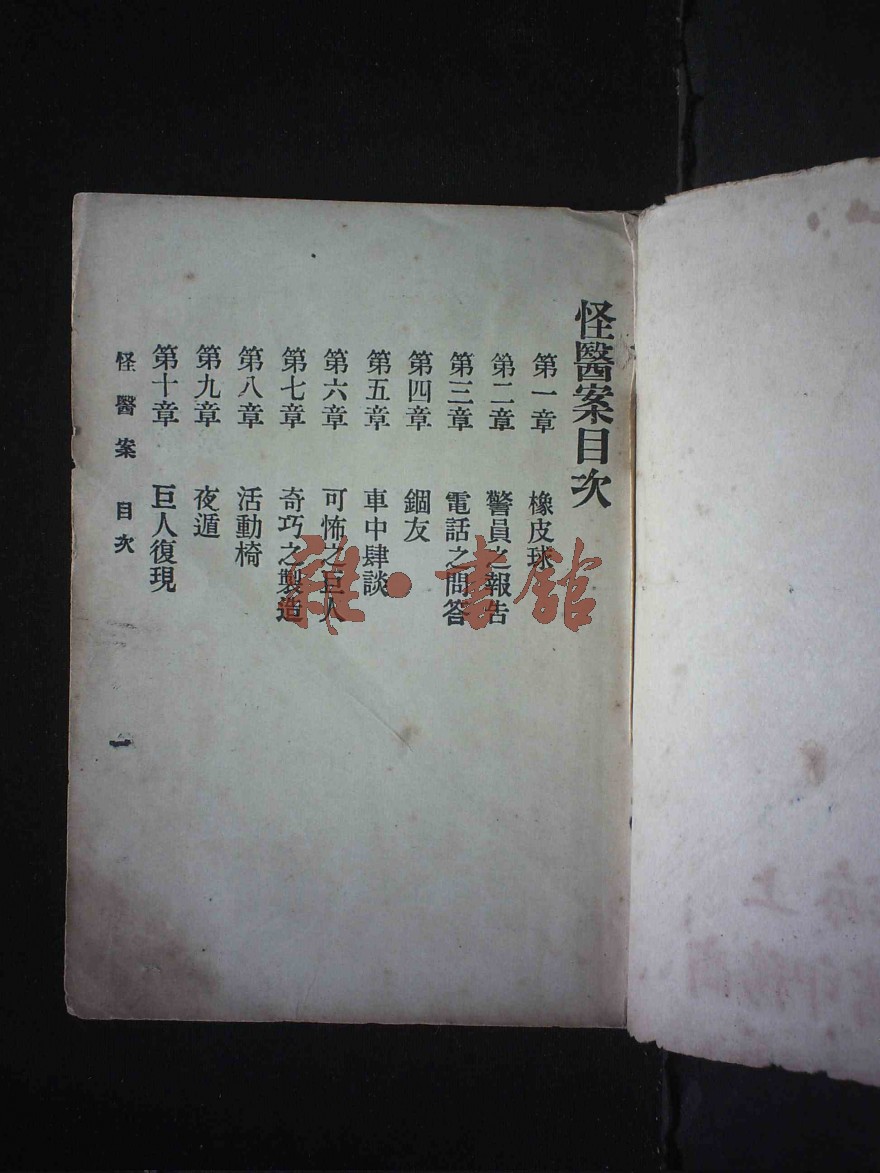 怪醫案目次
第一章 橡皮球
第二章 警員之報告
第三章 電話之問答
第四章 錮友
第五章 車中肆談
第六章 可怖之巨人
第七章 奇巧之製造
第八章 活動椅
第九章 夜遁
第十章 巨人復現
怪醫案 目次 一
雜·書館